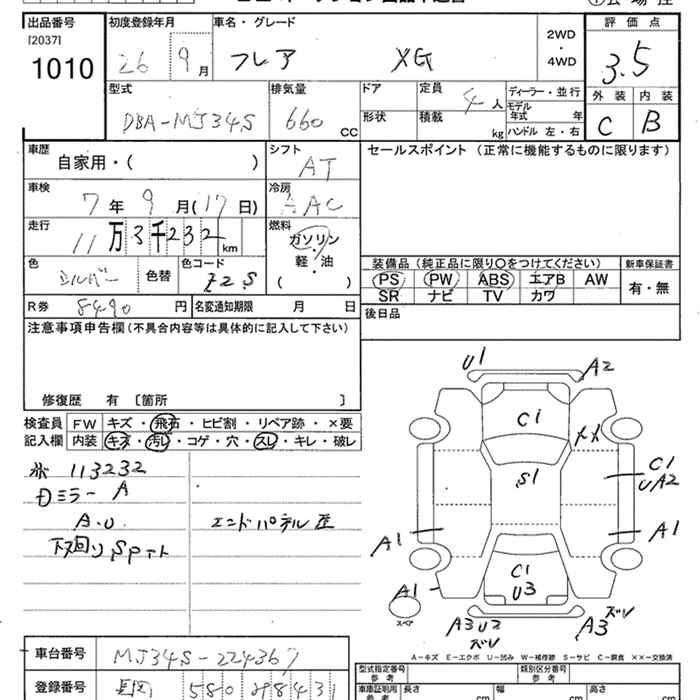 出品番号 初度登録年月 車名・グレード 評価点
[2037]
1010 26 9月 フレア XG 2WD・4WD 3.5
外装 内装
C B
型式 排気量 ドア 定員 ディーラー・並行
DBA-MJ34S 660 CC 4人 モデル年式 年
形状 積載 kg ハンドル 左・右
車歴 シフト セールスポイント (正常に機能するものに限ります)
自家用・( ) AT
車検 冷房
7年 9月(17日) AAC
走行 燃料
11万3千232km ガソリン・軽・油
( )
色 色替 色コード
シルバー Z2S
装備品 (純正品に限り○をつけてください) 新車保証書
PS PW ABS エアB AW 有・無
SR ナビ TV カワ
R券 8490円 名変通知期限 月 日
後日品
注意事項申告欄(不具合内容等は具体的に記入して下さい)
修復歴 有 [箇所 ]
検査員記入欄 FW キズ・飛石・ヒビ割・リペア跡・×要
内装 キズ・汚レ・コゲ・穴・スレ・キレ・破レ
113232
ミラー A
A.U エンドパネル
下回り Spート
U1 A2
C1
XX
S1 C1
UA2
A1 A1
C1
U3
A1
スペア
A3U2 A3
ズレ ズレ
A-キズ E-エクボ U-凹み W-補修跡 S-サビ C-腐食 ××-交換済
車台番号 MJ34S-224367
型式指定番号 参考 類別区分番号 参考
登録番号 580 431
車庫証明用参考 長さ cm 幅 cm 高さ cm